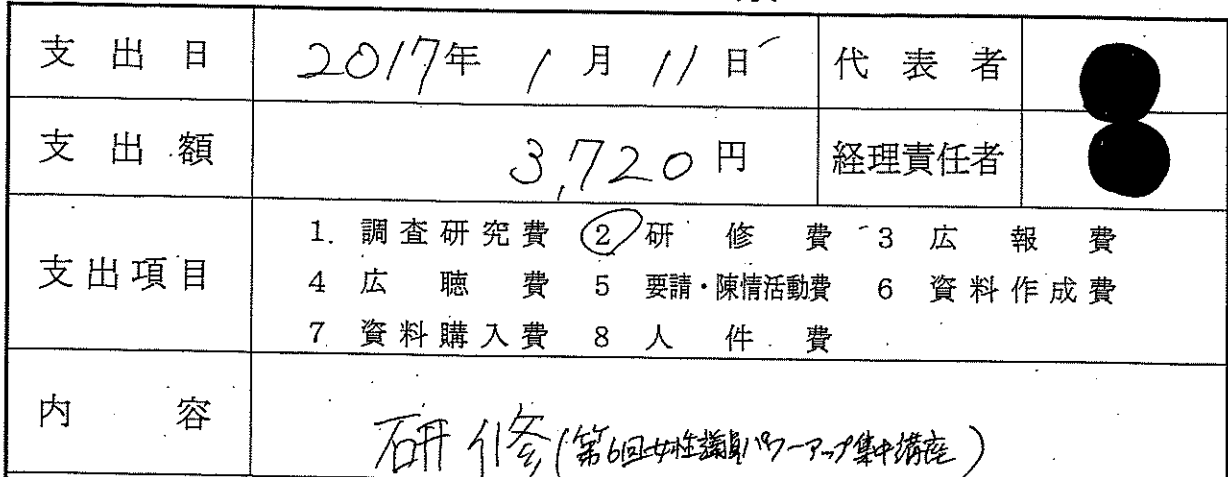 支出日 2017年 1月 11日 代表者
支出額 3,720円 経理責任者
支出項目
1. 調査研究費 2 研修費 3 広報費
4 広聴費 5 要請・陳情活動費 6 資料作成費
7 資料購入費 8 人件費
内容 研修(第6回女性議員パワーアップ集中講座)